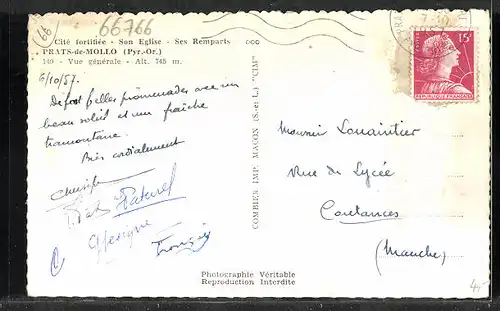 66
66766
Cité fortifiée - Son Eglise - Ses Remparts
PRATS-de-MOLLO (Pyr.-Or.)
140 - Vue générale - Alt. 745 m.
6/10/57.
De fort belles promenades avec un
beau soleil et un fraîche
tramontane.
Bien cordialement
François
COMBIER IMP. MACON (S.-et-L.) "CIM"
7-10
15F
REPUBLIQUE FRANÇAISE
Monsieur
Rue du Lycée
Coutances
(Manche)
Photographie Véritable
Reproduction Interdite